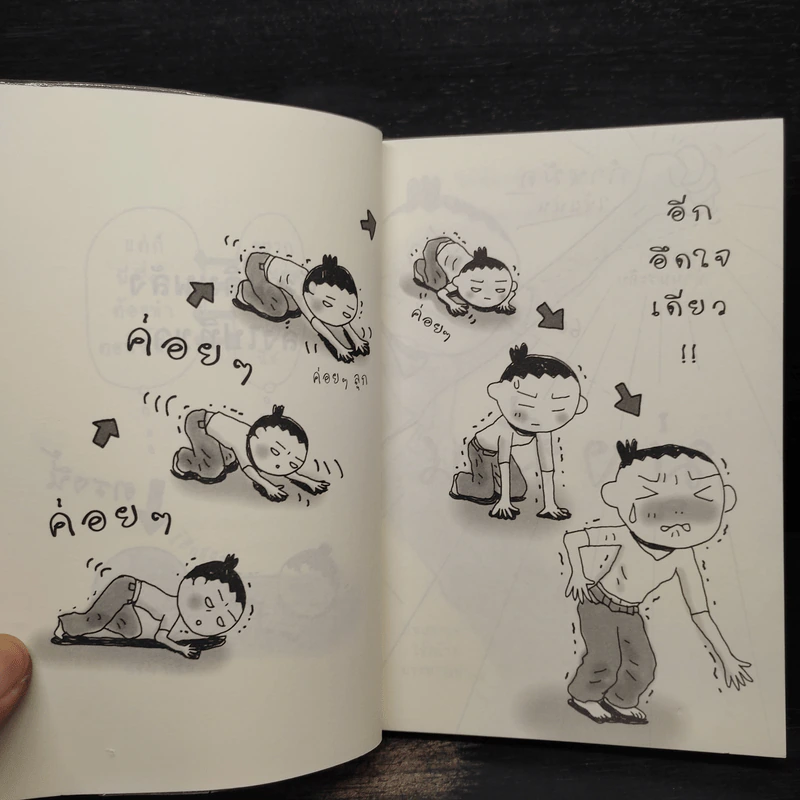 ค่อยๆ
ค่อยๆ
!!
ค่อยๆ ลุก
ค่อยๆ
อีก
อึดใจ
เดียว
!!